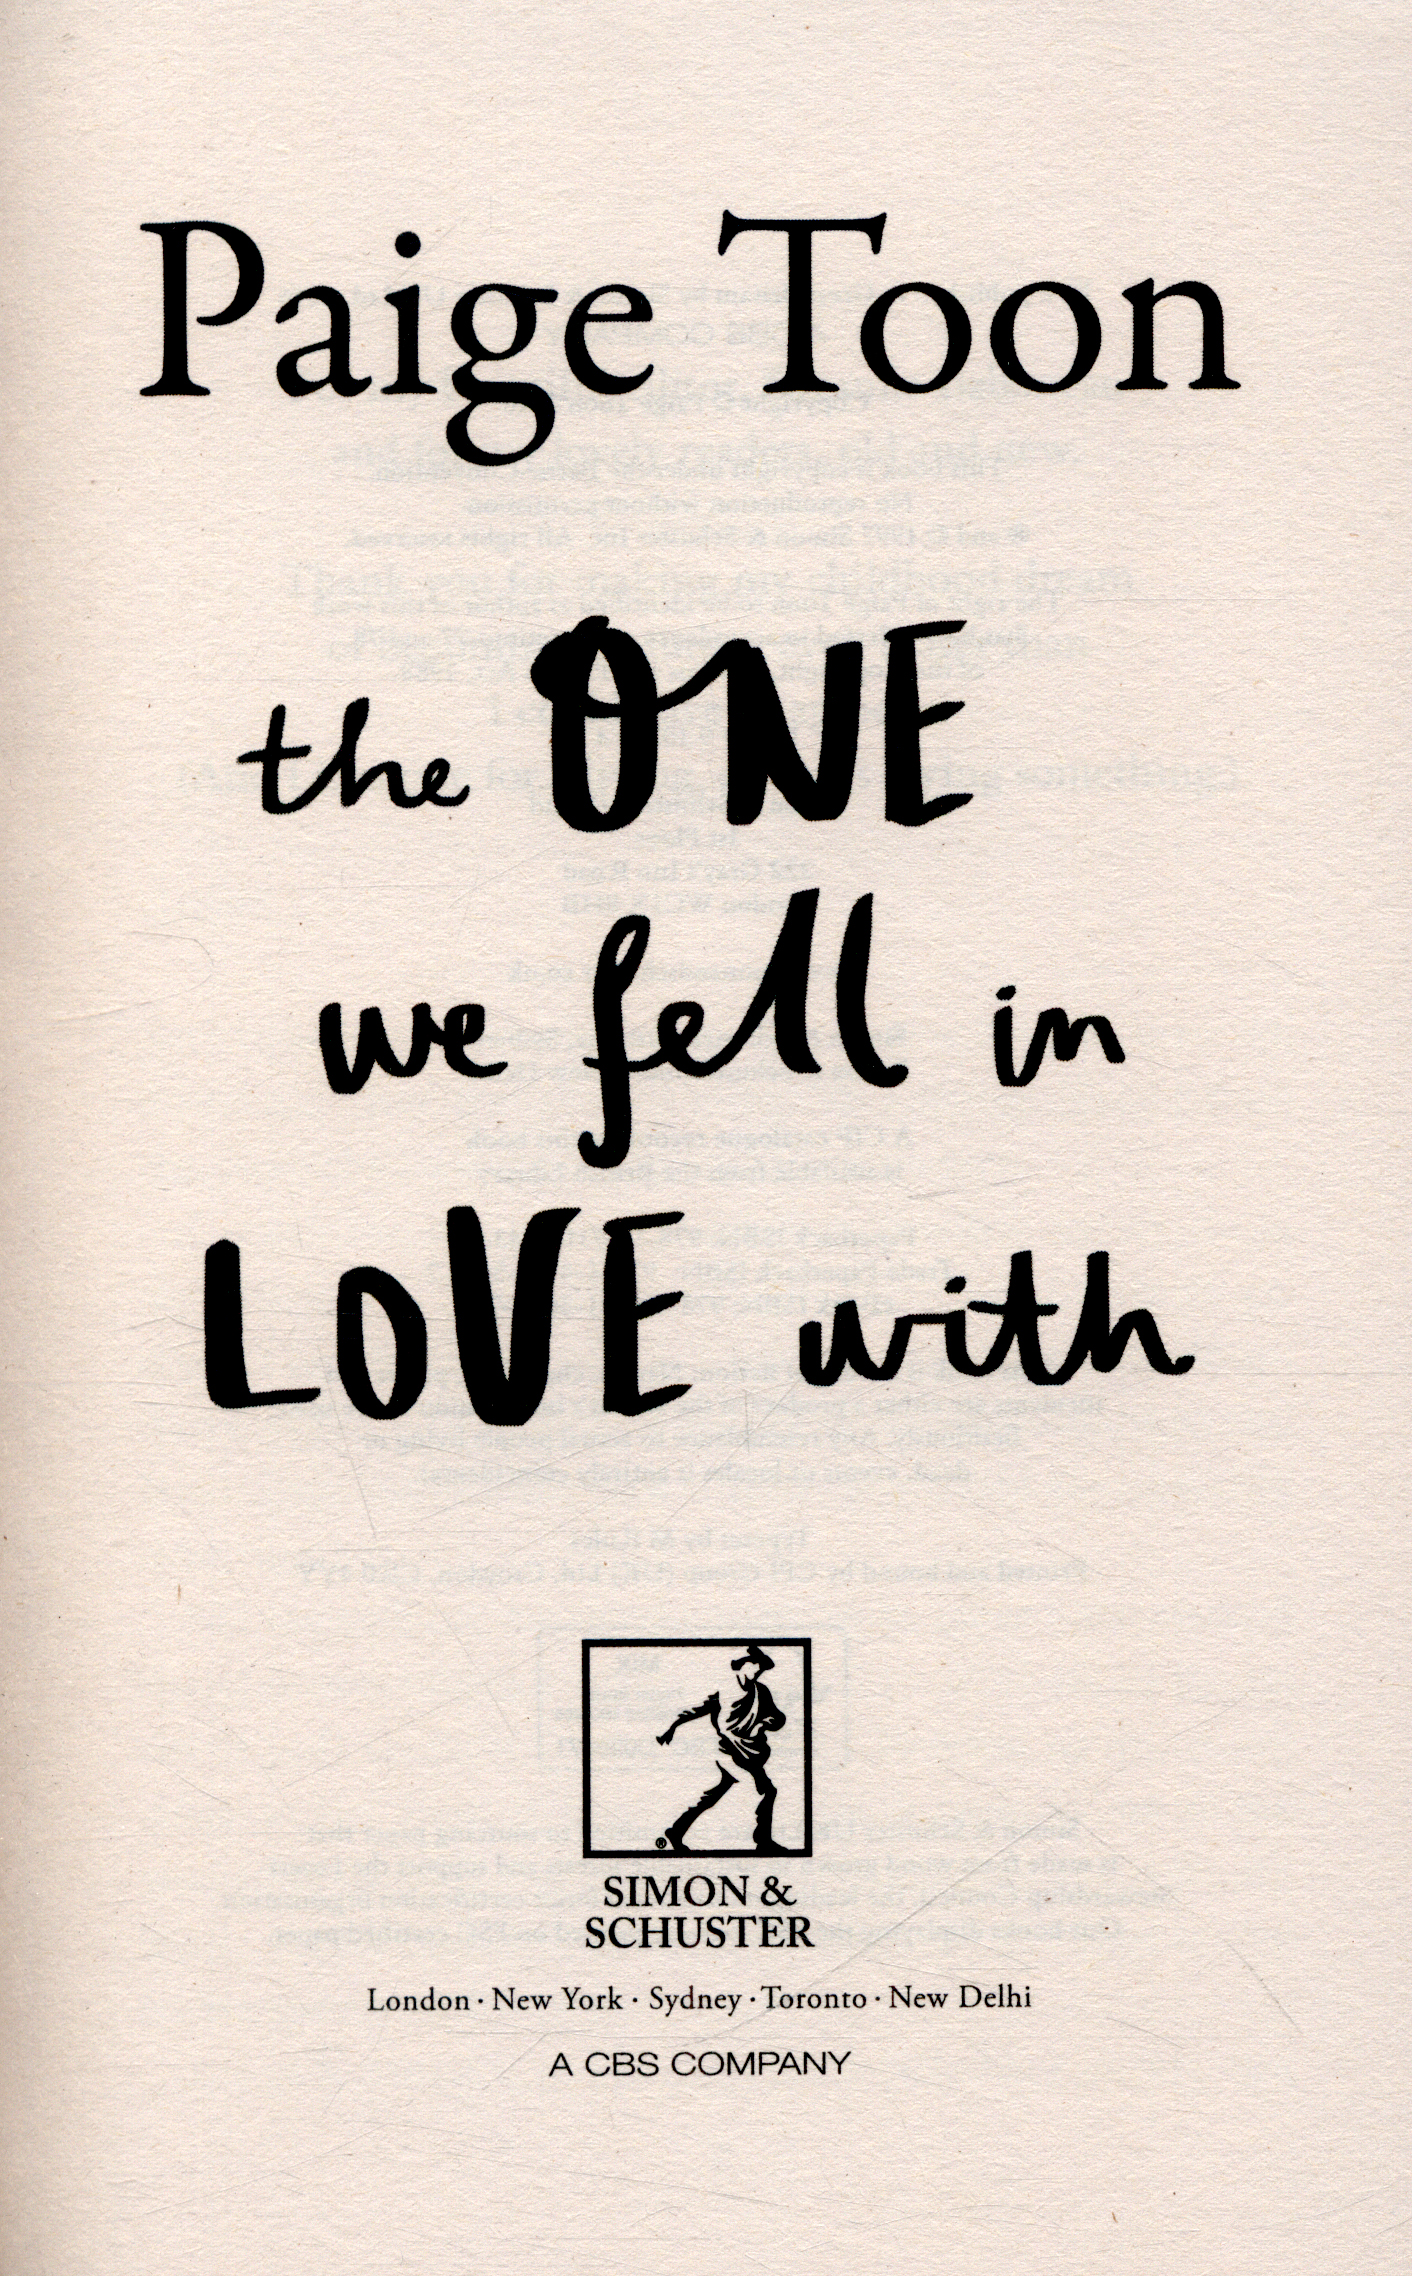 Paige Toon
the ONE
we fell in
LOVE with
SIMON &
SCHUSTER
London · New York · Sydney · Toronto · New Delhi
A CBS COMPANY